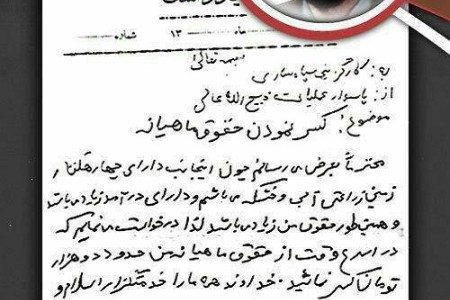 ماه ۱۳ شماره
بسمه تعالی
به: کارگزینی سپاه ساری
از: پاسدار عملیات ذبیح الله عالی
موضوع: کسر نمودن حقوق ماهیانه
محترماً بعرض می رسانم چون اینجانب دارای چهار هکتار
زمین زراعتی آبی و خشکه می باشم و دارای درآمد زیاد می باشد
و همینطور حقوق من زیاد می باشد لذا درخواست می نمایم که
در اسرع وقت از حقوق ماهیانه من حدود دو هزار
تومان کسر نمائید. خداوند همه ما را خدمتگزار اسلام و